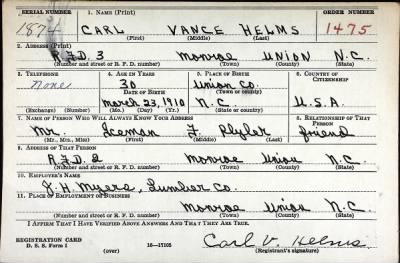 SERIAL NUMBER 1. NAME (Print) ORDER NUMBER
1874 CARL VANCE HELMS 1475
(First) (Middle) (Last)
2. ADDRESS (Print)
R.F.D. 3 MONROE UNION N.C.
(Number and street or R. F. D. number) (Town) (County) (State)
3. TELEPHONE 4. AGE IN YEARS 5. PLACE OF BIRTH 6. COUNTRY OF CITIZENSHIP
None 30 Union Co.
DATE OF BIRTH (Town or county)
March 23, 1910 N.C. U.S.A.
(Exchange) (Number) (Mo.) (Day) (Yr.) (State or country)
7. NAME OF PERSON WHO WILL ALWAYS KNOW YOUR ADDRESS 8. RELATIONSHIP OF THAT PERSON
Mr. Iceman F. Plyler friend
(Mr., Mrs., Miss) (First) (Middle) (Last)
9. ADDRESS OF THAT PERSON
R.F.D. 2 Monroe Union N.C.
(Number and street or R. F. D. number) (Town) (County) (State)
10. EMPLOYER'S NAME
J. H. Myers, Lumber Co.
11. PLACE OF EMPLOYMENT OR BUSINESS
Monroe Union N.C.
(Number and street or R. F. D. number) (Town) (County) (State)
I AFFIRM THAT I HAVE VERIFIED ABOVE ANSWERS AND THAT THEY ARE TRUE.
REGISTRATION CARD
D. S. S. Form 1 (over) 16-17105 Carl V. Helms
(Registrant's signature)